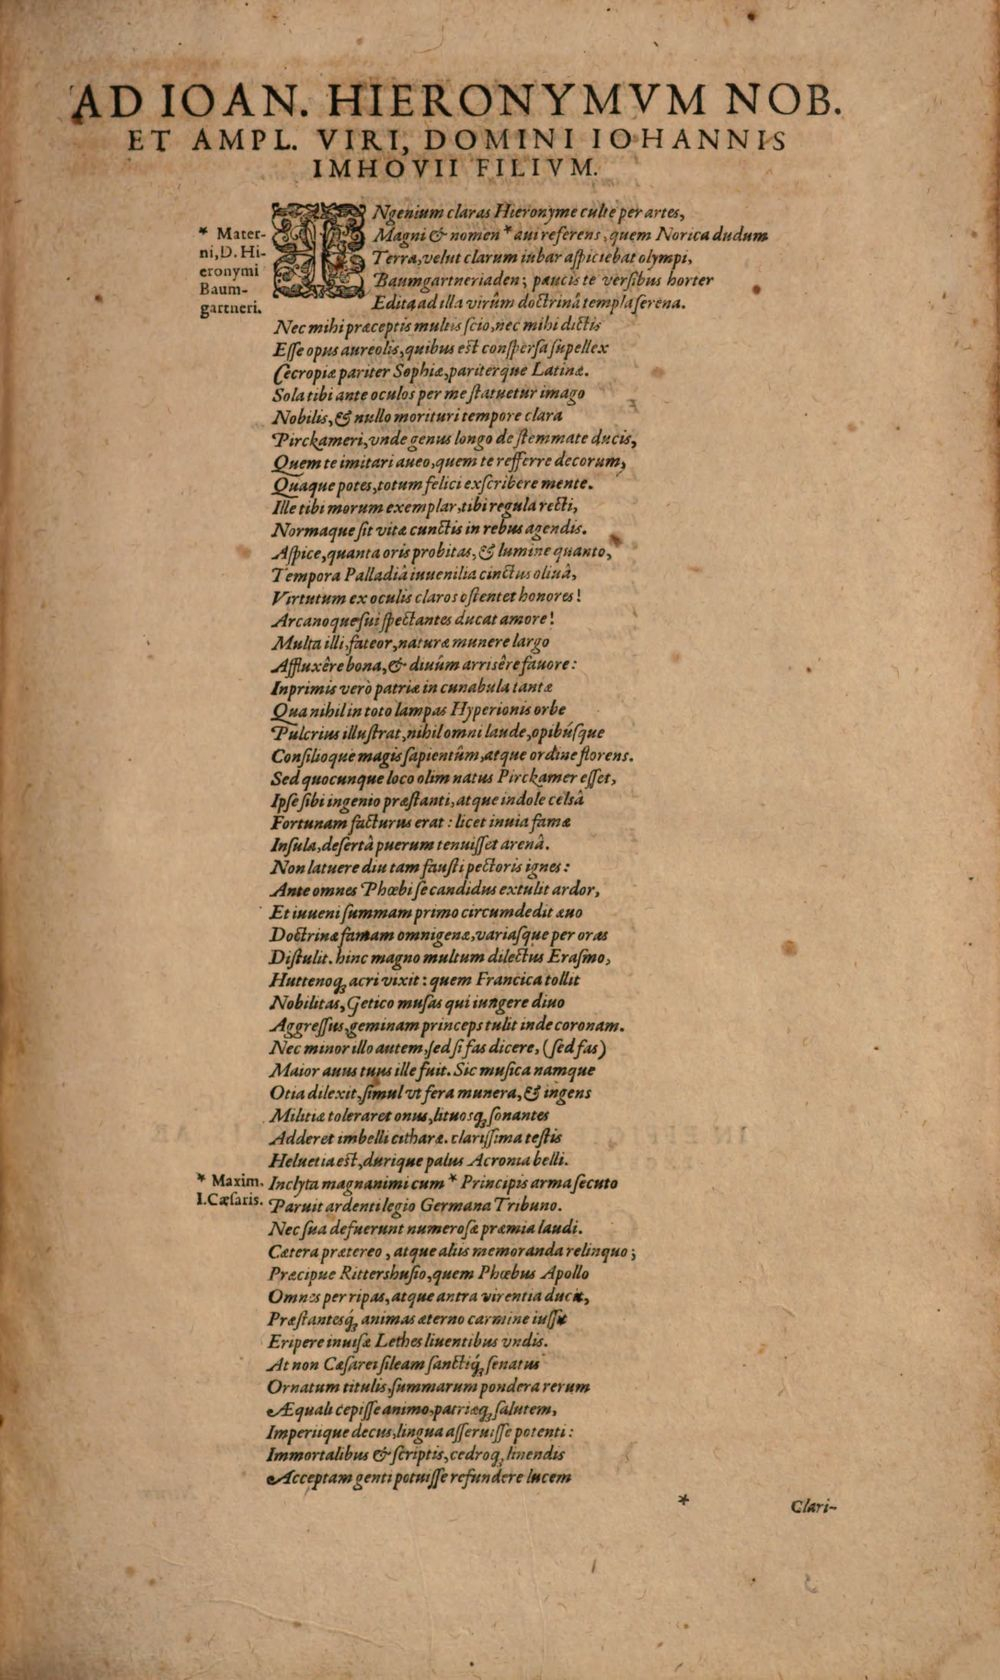 AD IOAN. HIERONYMVM NOB.
ET AMPL. VIRI, DOMINI IOHANNIS
IMHOVII FILIVM.
INgenium claras Hieronyme culte per artes,
Magni & nomen * aui referens, quem Norica dudum
Terra, velut clarum iubar aſpiciebat olympi,
Baumgartneriaden; paucis te verſibus horter
Edita ad illa virûm doctrinâ templa ſerena.
* Mater-
ni, D. Hi-
eronymi
Baum-
gartneri.
Nec mihi præceptis multis ſcio, nec mihi dictis
Eſſe opus aureolis, quibus est conſperſa ſupellex
Cecropiæ pariter Sophiæ, pariterque Latinæ.
Sola tibi ante oculos per me ſtatuetur imago
Nobilis, & nullo morituri tempore clara
Pirckameri, vnde genus longo de ſtemmate ducis,
Quem te imitari aueo, quem te refferre decorum,
Quaque potes, totum felici exſcribere mente.
Ille tibi morum exemplar, tibi regula recti,
Normaque ſit vitæ cunctis in rebus agendis.
Aſpice, quanta oris probitas, & lumine quanto,
Tempora Palladiâ iuuenilia cinctus oliuâ,
Virtutum ex oculis claros oſtentet honores!
Arcanoque ſui ſpectantes ducat amore!
Multa illi, fateor, naturæ munere largo
Affluxêre bona, & diuûm arriſêre fauore:
Inprimis verò patriæ in cunabula tantæ
Qua nihil in toto lampas Hyperionis orbe
Pulcrius illuſtrat, nihil omni laude, opibúſque
Conſilioque magis ſapientûm, atque ordine florens.
Sed quocunque loco olim natus Pirckamer eſſet,
Ipſe ſibi ingenio præſtanti, atque indole celsâ
Fortunam facturus erat: licet inuia famæ
Inſula, deſertâ puerum tenuiſſet arenâ.
Non latuere diu tam fauſti pectoris ignes:
Ante omnes Phœbi ſe candidus extulit ardor,
Et iuueni ſummam primo circumdedit æuo
Doctrinæ famam omnigenæ, variaſque per oras
Diſtulit. hinc magno multum dilectus Eraſmo,
Huttenoq́; acri vixit: quem Francica tollit
Nobilitas, Getico muſas qui iungere diuo
Aggreſſus, geminam princeps tulit inde coronam.
Nec minor illo autem, ſed ſi fas dicere, (ſed fas)
Maior auus tuus ille fuit. Sic muſica namque
Otia dilexit, ſimul vt fera munera, & ingens
Militiæ toleraret onus, lituosq́; ſonantes
Adderet imbelli citharæ. clariſſima teſtis
Heluetia est, durique palus Acronia belli.
* Maxim.
I. Cæſaris.
Inclyta magnanimi cum * Principis arma ſecuto
Paruit ardenti legio Germana Tribuno.
Nec ſua defuerunt numeroſæ præmia laudi.
Cætera prætereo, atque aliis memoranda relinquo;
Præcipue Rittershuſio, quem Phœbus Apollo
Omnes per ripas, atque antra virentia ducit,
Præſtantesq́; animas æterno carmine iuſſit
Eripere inuiſæ Lethes liuentibus vndis.
At non Cæſarei ſileam ſanctiq́; ſenatus
Ornatum titulis, ſummarum pondera rerum
Æquali cepiſſe animo, patriæq́; ſalutem,
Imperiique decus, lingua aſſeruiſſe potenti:
Immortalibus & ſcriptis, cedroq́; linendis
Acceptam genti potuiſſe refundere lucem
*
Clari-